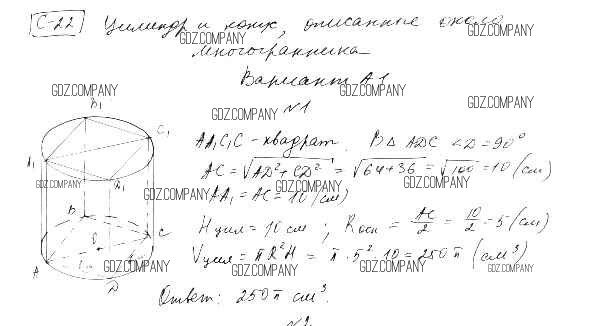 С-22 Цилиндр и конус, описанные около
многогранника
Вариант А1
№1
AA₁C₁C - квадрат. В Δ ADC ∠D = 90°
AC = √AD² + CD² = √64+36 = √100 = 10 (см)
AA₁ = AC = 10 (см)
H цил = 10 см ; R осн = AC/2 = 10/2 = 5 (см)
V цил = πR²H = π · 5² · 10 = 250 π (см³)
Ответ: 250 π см³.
№2
B₁
C₁
A₁
D₁
B
C
A
D
GDZ.COMPANY
GDZ.COMPANY
GDZ.COMPANY
GDZ.COMPANY
GDZ.COMPANY
GDZ.COMPANY
GDZ.COMPANY
GDZ.COMPANY
GDZ.COMPANY
GDZ.COMPANY
GDZ.COMPANY
GDZ.COMPANY
GDZ.COMPANY
GDZ.COMPANY